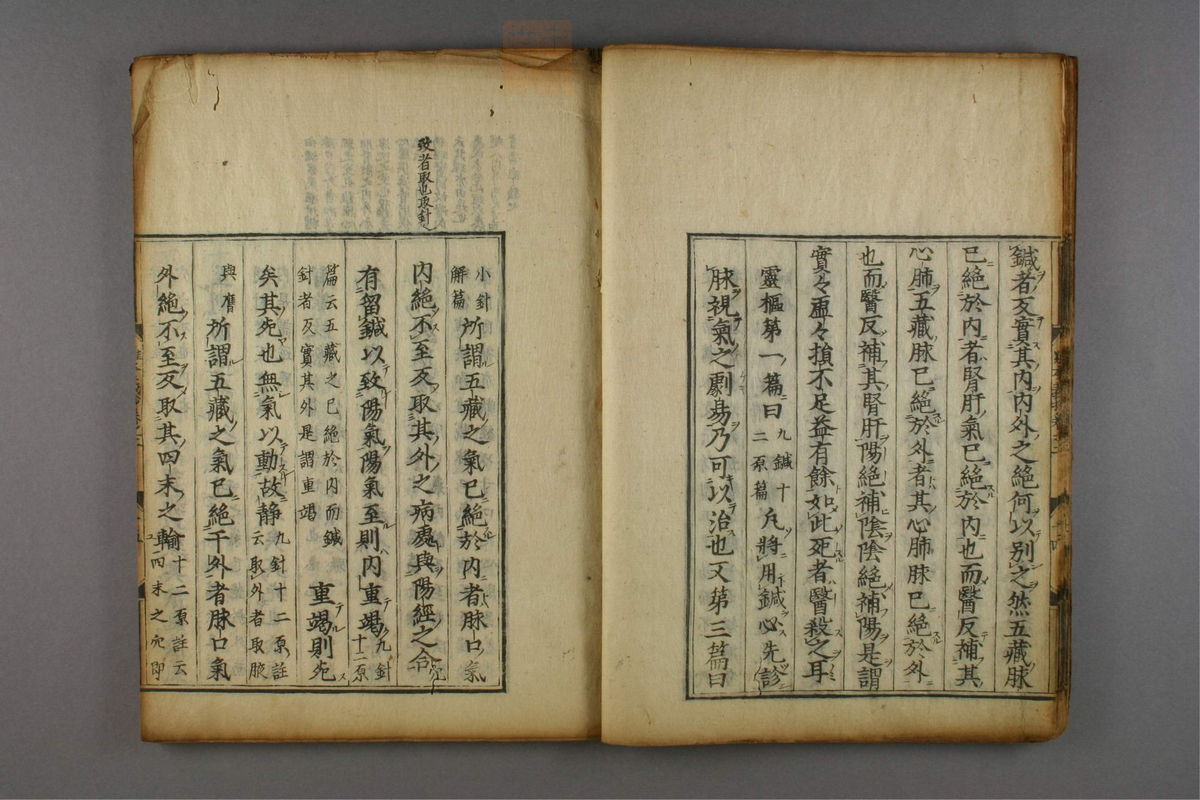 鍼者反實其内内外之絶何以別之然五藏脉
已絶於内者腎肝氣已絶於内也而醫反補其
心肺五藏脉已絶於外者其心肺脉已絶於外
也而醫反補其腎肝陽絶補陰陰絶補陽是謂
實々虚々損不足益有餘如此死者醫殺之耳
靈樞第一篇曰九鍼十二原篇凡將用鍼必先診
脉視氣之劇易乃可以治也又第三篇曰
致者取也取針
小針解篇所謂五藏之氣已絶於内者脉口氣
内絶不至反取其外之病處與陽經之合
有留鍼以致陽氣陽氣至則内重竭九針十二原
篇云五藏之已絶於内而鍼針者反實其外是謂重竭重竭則死
矣其死也無氣以動故静九針十二原註云取外者取腋
與膺所謂五藏之氣已絶于外者脉口氣
外絶不至反取其四末之輸十二原註云四末之穴即